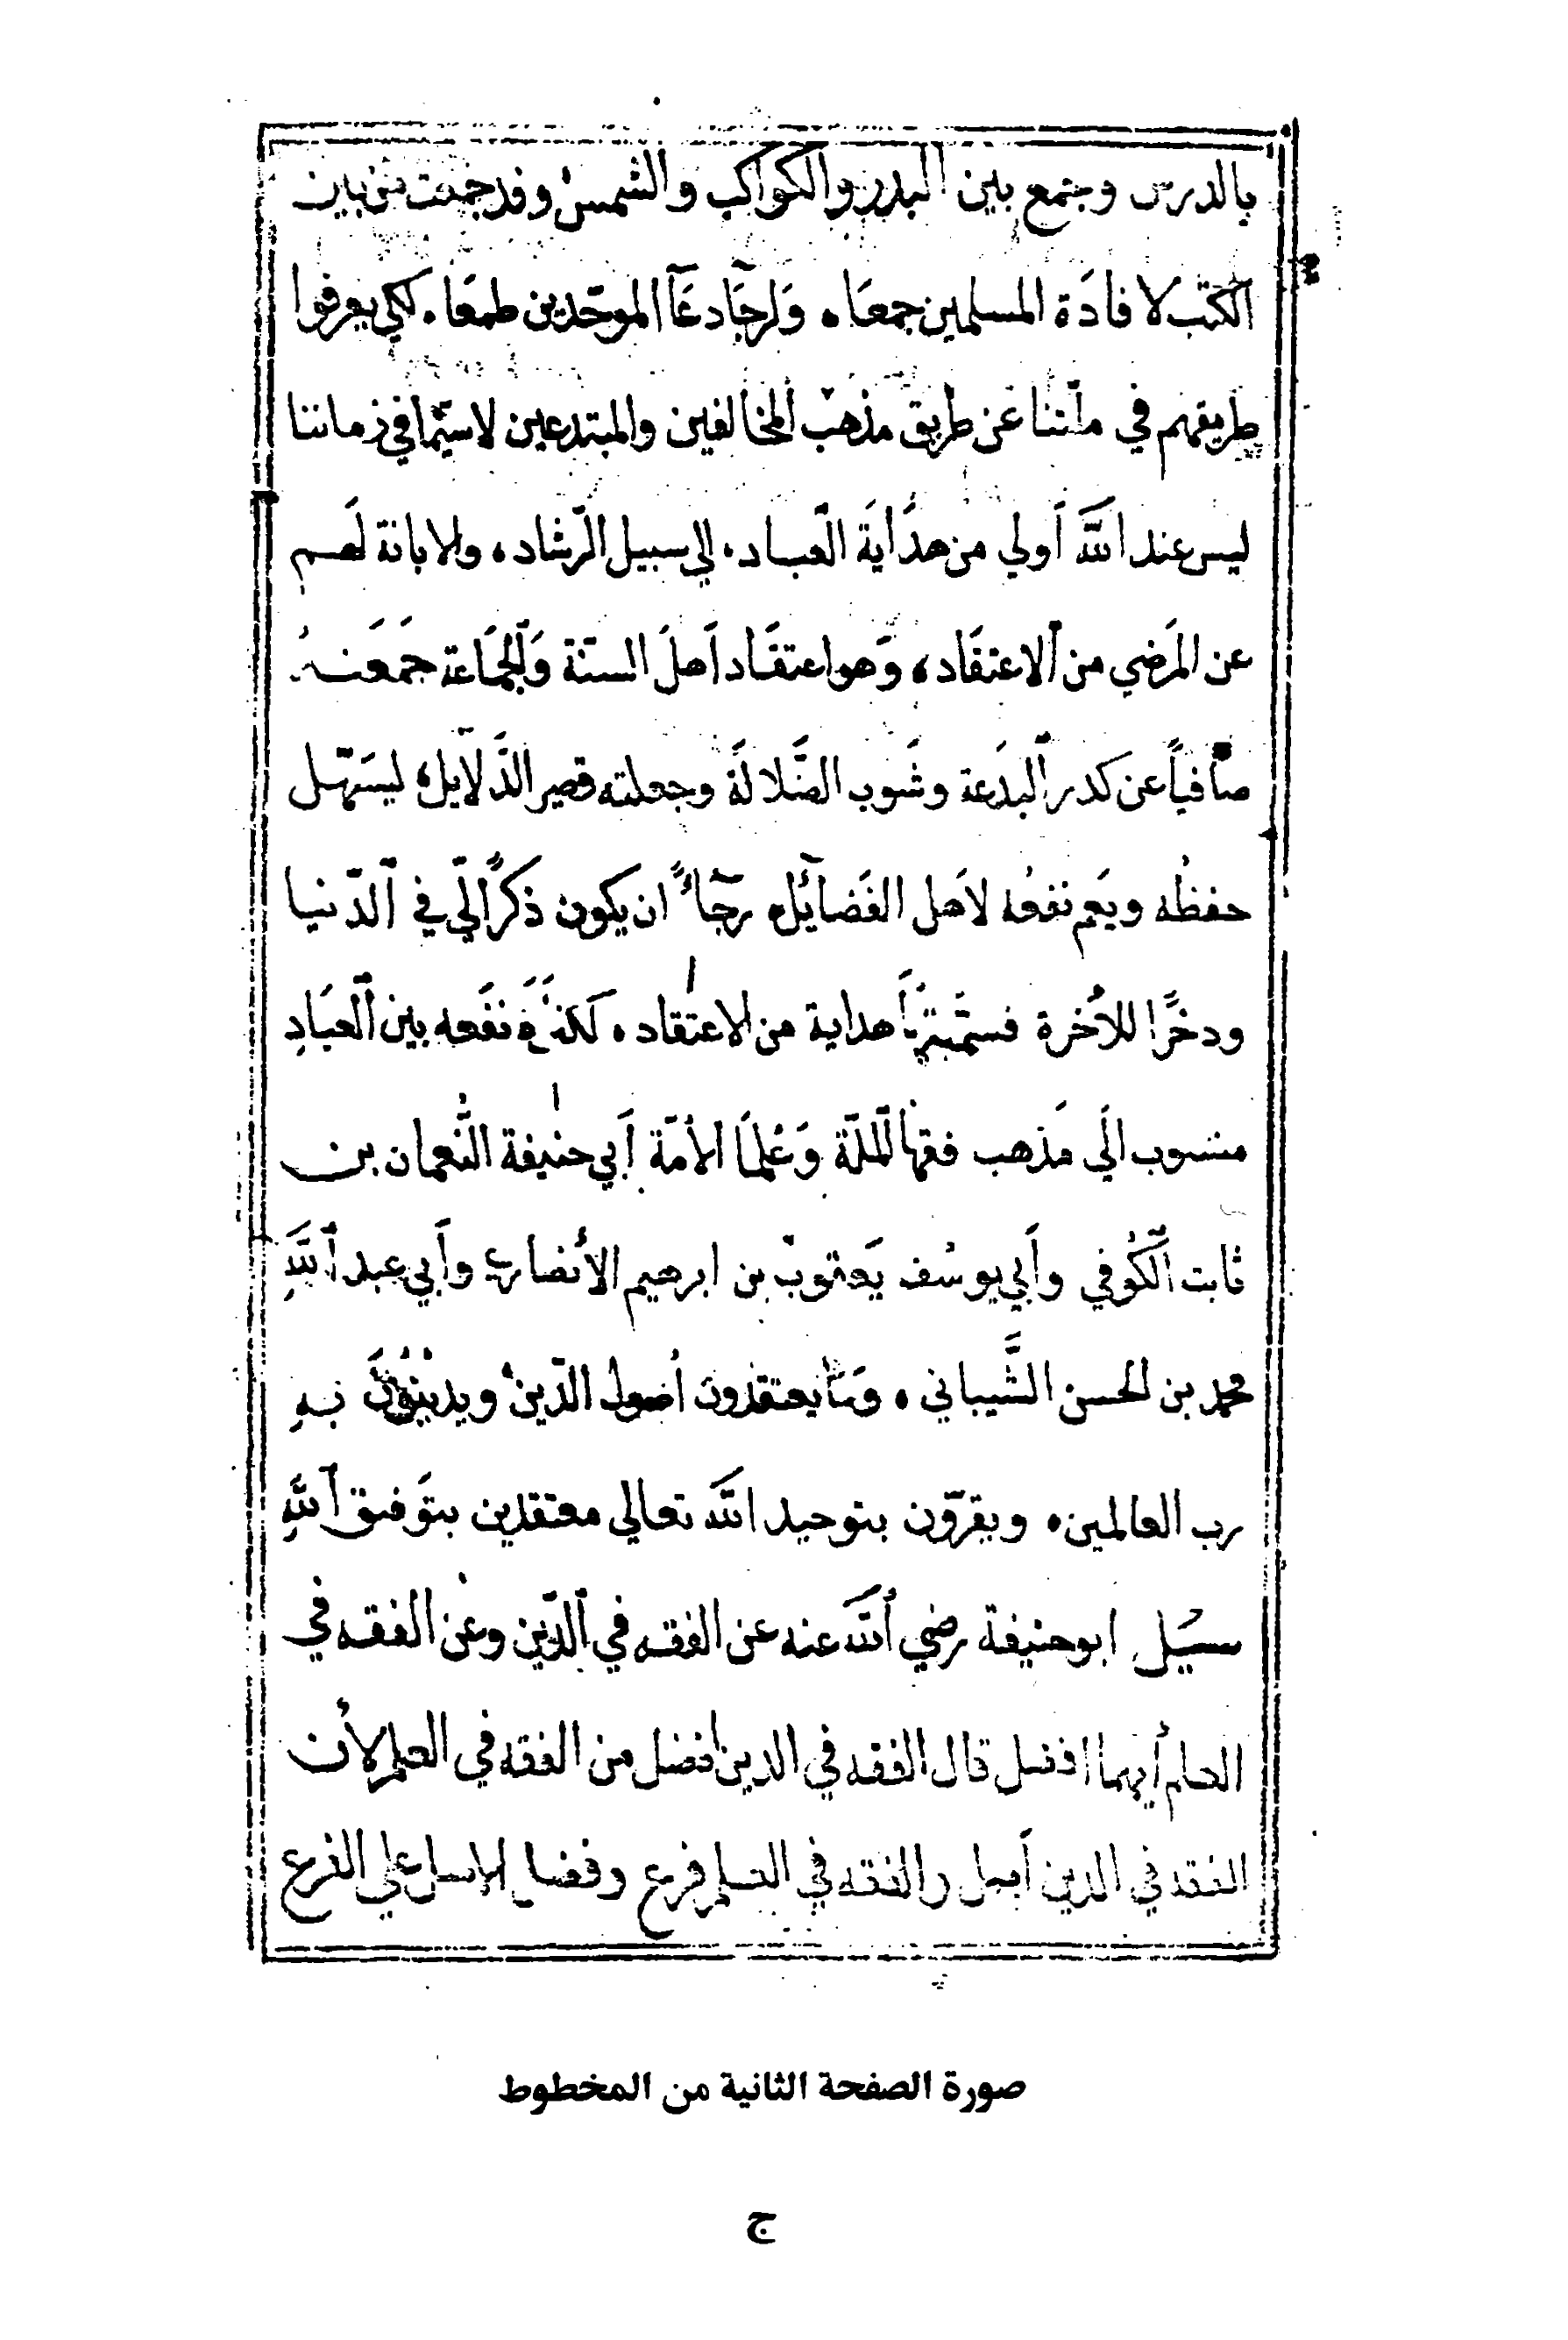 بالدرس وجمع بين البدر والكواكب والشمس وقد جمعت من بين
الكتب لافادَة المسلمين جمعَا، وَلرجَآ دعَآ الموحّدين طمعَا، لكي يعرفوا
طريقهم في ملّتنا عَن طريق مذهب المخالفين والمبتدعين لاسيّما في زماننا
ليس عند اللّه أولي من هدَايَة العباد، الي سبيل الرّشاد، والابانة لَهم
عن المَرضي من الاعتقَاد، وَهو اعتقَاد اَهلَ السنّة وَالجمَاعة جمَعَتهُ
صَافياً عن كدر البدَعة وشَوب الضَّلالَة وجعلته قصير الدَّلايل، ليسَهّل
حفظُه ويعَم نفعُه لاَهل الفَضَآئل، رجَآءً ان يكون ذكرًا لي في الدّنيا
ودخرًا للأخرة هداية من الاعتقاد، نفَعه بين العبَادِ
منسوب الَي مَذهب فقها الملّة وَعُلمَا الأمّة أَبي حنيفة النُّعمان بن
ثابت الكُوفي وأَبي يوسُف يَعقوب بن ابرهيم الأنصاري وأَبي عبد اللّهِ
محمد بن الحسن الشَّيباني، وَمَا يعتقدون أُصول الدّين ويدينُونَ بهِ
رب العالمين، ويقرّون بتوحيد اللّه تعالي معتقدين بتوَفيق اللّهِ
سيَل ابوحنيفة رضي اللَّه عنه عن الفقه في الدّين وعَن الفقه في
العلم أيهما افضل قال الفقه في الدين افضل من الفقه في العلم لأن
الفقه في الدين أصل والفقه في العلم فرع وفضل الاصل علي الفرع
صورة الصفحة الثانية من المخطوط
ج